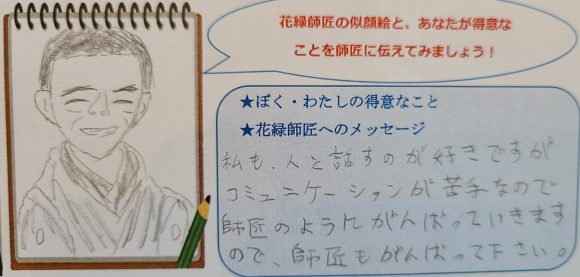 花緑師匠の似顔絵と、あなたが得意な
ことを師匠に伝えてみましょう！
★ぼく・わたしの得意なこと
★花緑師匠へのメッセージ
私も、人と話すのが好きですが
コミュニケーションが苦手なので
師匠のようにがんばっていきます
ので、師匠もがんばって下さい。